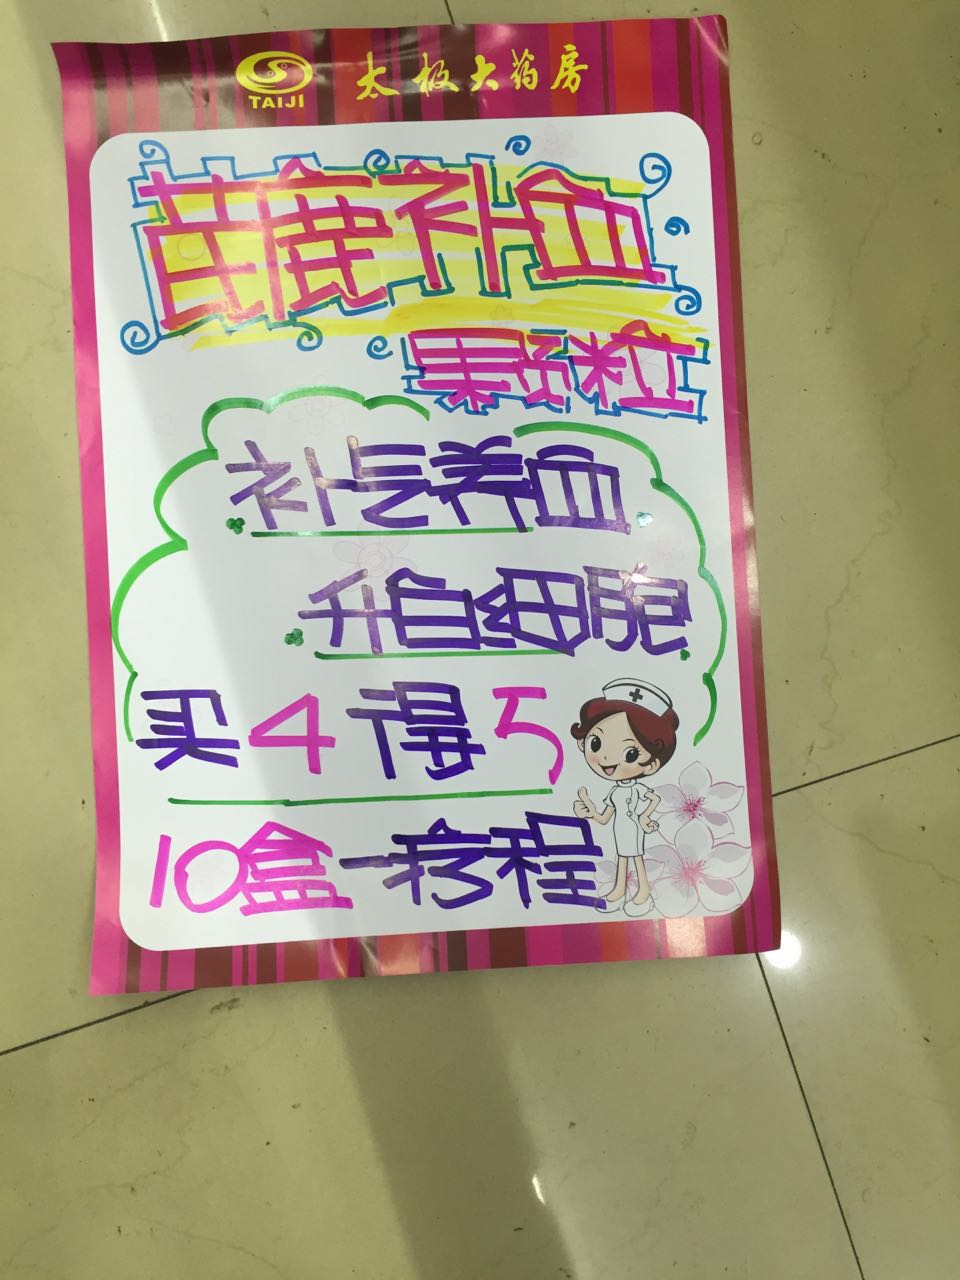 TAIJI 太极大药房
芪鹿补血
颗粒
补气养血
升白细胞
买4得5
10盒一疗程